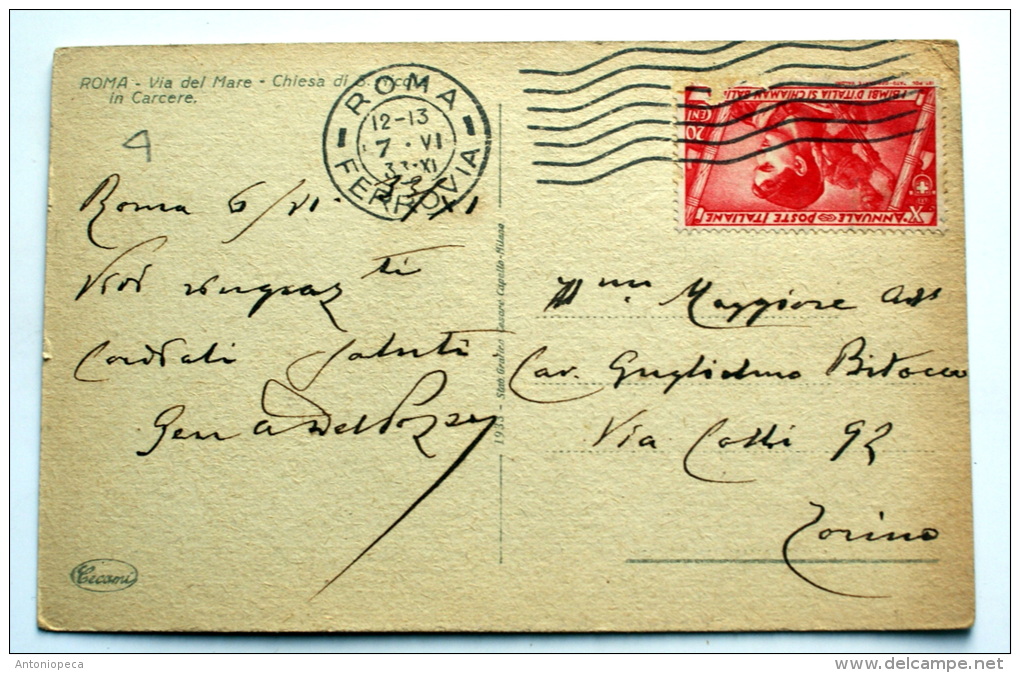 ROMA - Via del Mare - Chiesa di S. Nicola
in Carcere.
ROMA
12-13
7 · VI
33 · XI
FERROVIA
4
Roma 6/VI. XI
Vivi ringraz ti
Cordiali saluti
Gen A Del Pozzo
1933 - Stab. Grafico Cesare Capello - Milano
X ANNUALE POSTE ITALIANE
I BIMBI D'ITALIA SI CHIAMAN BALI
20
CENT
Maggiore
Cav. Guglielmo Bitocco
Via Colli 92
Torino
Cecami
Antoniopeca
www.delcampe.net